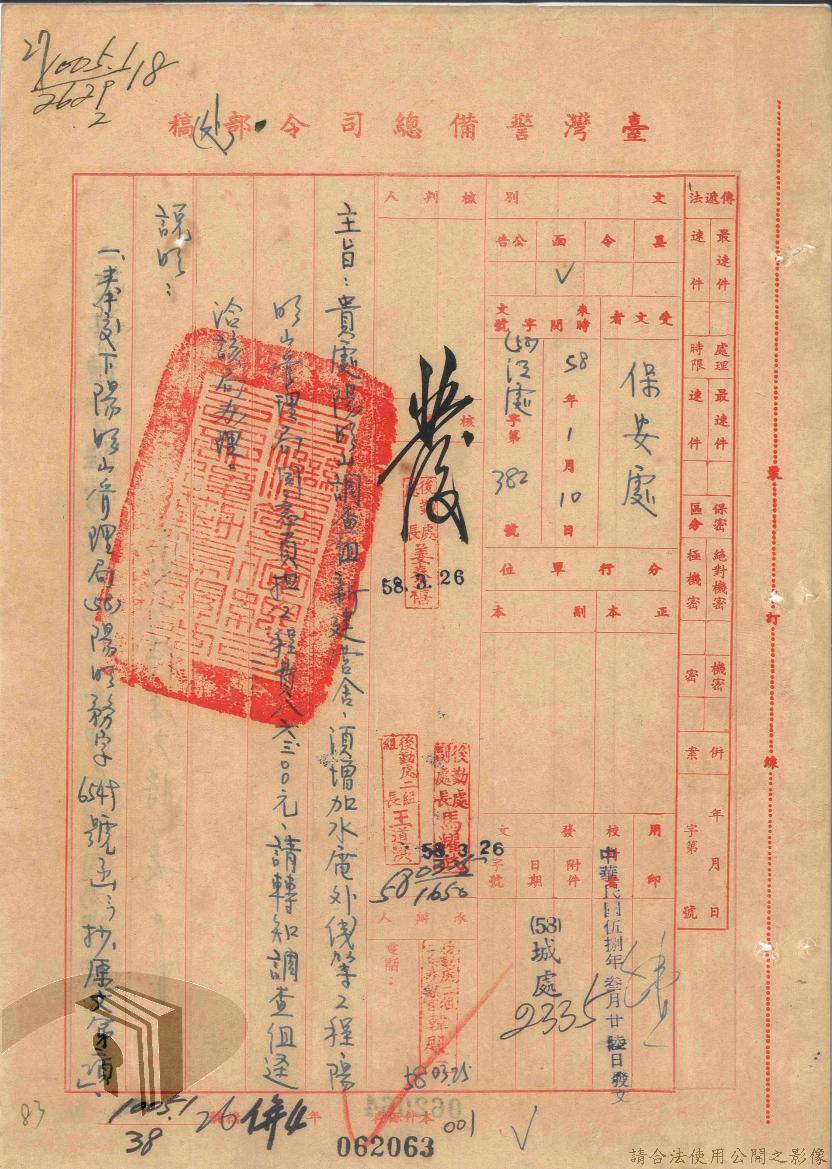 27 1005.1/18
2629
2
臺灣警備總司令部(處)稿
傳遞法
最速件
速件
處理時限
最速件
速件
保密區分
絕對機密
極機密
機密
密
併案
年月日
字第號
裝訂線
文別
呈
令
函
公告
V
受文者
保安處
來文時間字號
58年1月10日
(58)江處字第382號
分行單位
正本
副本
發文
校對
用印
附件
日期
字號
中華民國伍捌年叁月廿陸日發文
(58)城處
2335
核判人
核
後勤處處長姜
58.3.26
後勤處副處長馬
58.3.26
後勤處二組組長王道洪
580325
1650
承辦人
電話:
580325
主旨:貴處陽明山調查組新建營舍,須增加水電外線等工程陽
明山管理局同意負担工程費八六三〇〇元,請轉知調查組逕
洽該局办理。
說明:
一、奉交下陽明山管理局(58)陽明務字654號函:抄原文第項」、
1005.1
38
26
併4
年
本件
062064
062063
001
V
83
請合法使用公開之影像